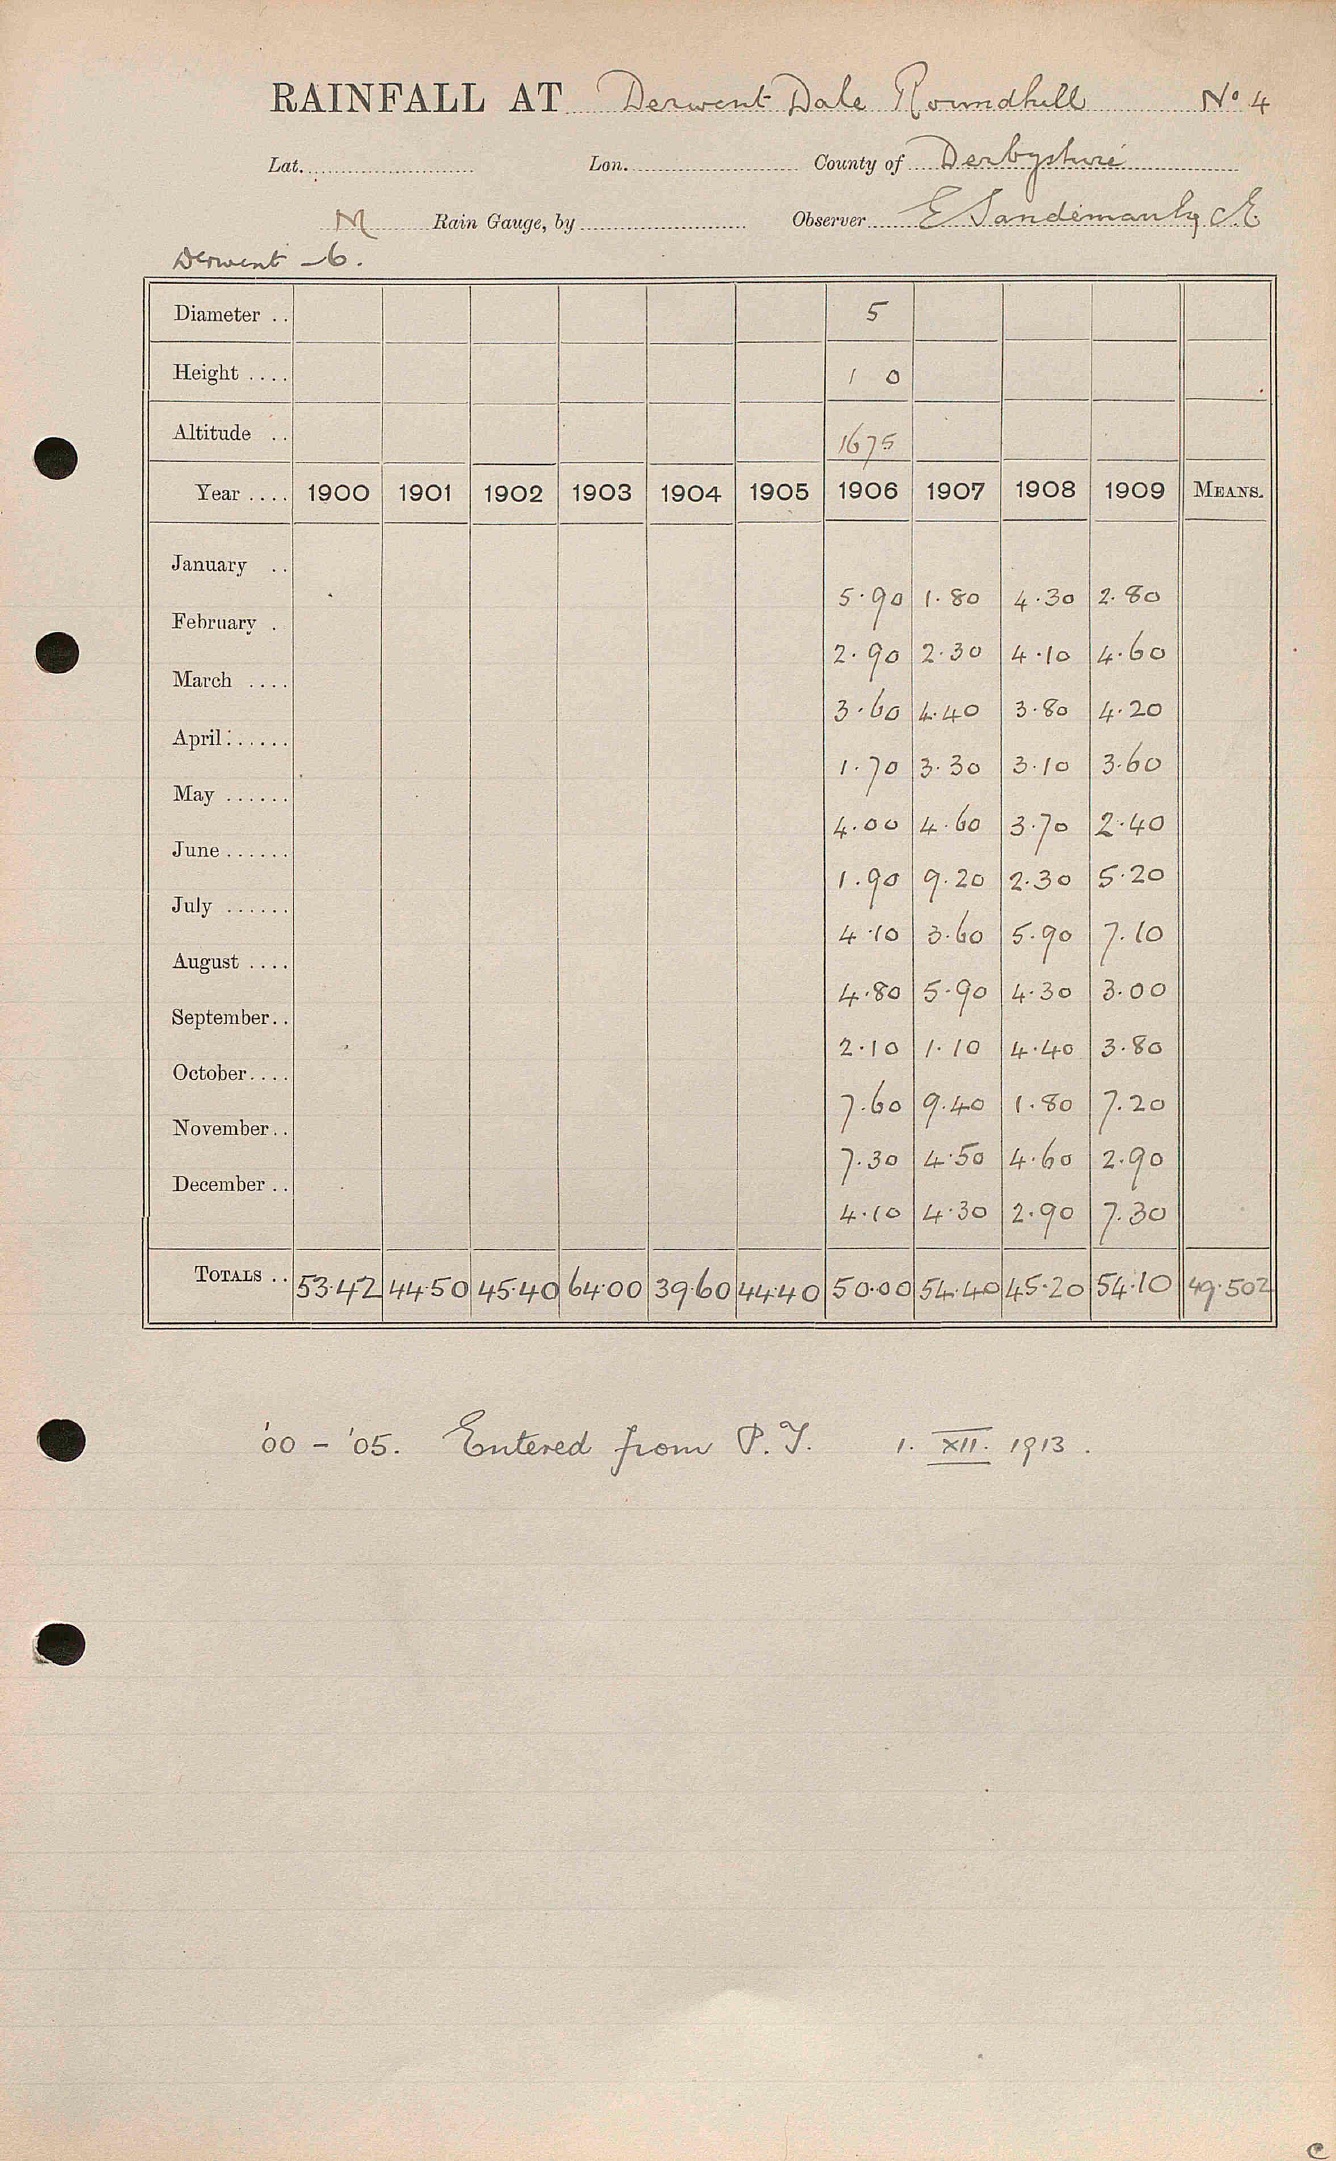 RAINFALL AT Derwent Dale Roundhill No 4
Lat. Lon. County of Derbyshire
M Rain Gauge, by Observer E Sandeman Esq C.E.
Derwent – 6.
Diameter .. 5
Height .... 1 0
Altitude .. 1675
Year .... 1900 1901 1902 1903 1904 1905 1906 1907 1908 1909 MEANS.
January .. 5.90 1.80 4.30 2.80
February . 2.90 2.30 4.10 4.60
March .... 3.60 4.40 3.80 4.20
April ...... 1.70 3.30 3.10 3.60
May ...... 4.00 4.60 3.70 2.40
June ...... 1.90 9.20 2.30 5.20
July ...... 4.10 3.60 5.90 7.10
August .... 4.80 5.90 4.30 3.00
September.. 2.10 1.10 4.40 3.80
October.... 7.60 9.40 1.80 7.20
November.. 7.30 4.50 4.60 2.90
December .. 4.10 4.30 2.90 7.30
TOTALS .. 53.42 44.50 45.40 64.00 39.60 44.40 50.00 54.40 45.20 54.10 49.502
'00 – '05. Entered from P.T. 1. XII. 1913.
C